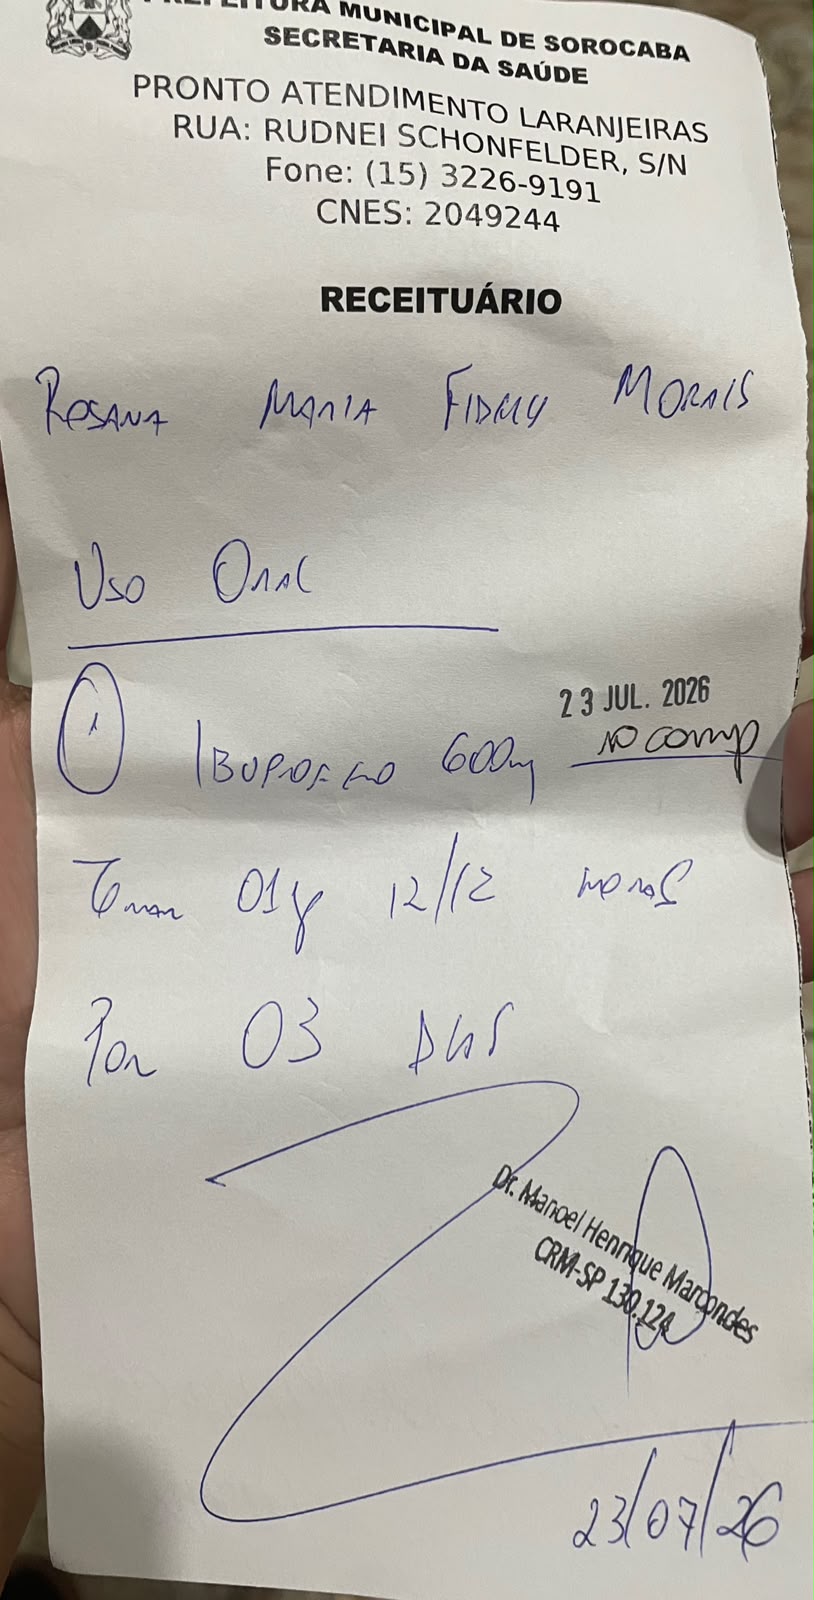 PREFEITURA MUNICIPAL DE SOROCABA
SECRETARIA DA SAÚDE
PRONTO ATENDIMENTO LARANJEIRAS
RUA: RUDNEI SCHONFELDER, S/N
Fone: (15) 3226-9191
CNES: 2049244
RECEITUÁRIO
ROSANA MARIA MORAIS
USO ORAL
1 IBUPROFENO 600mg
23 JUL. 2026
10 comp
TOMAR 01 12/12 HORAS
POR 03 DIAS
Dr. Manoel Henrique Marcondes
CRM-SP 130.124
23/07/26